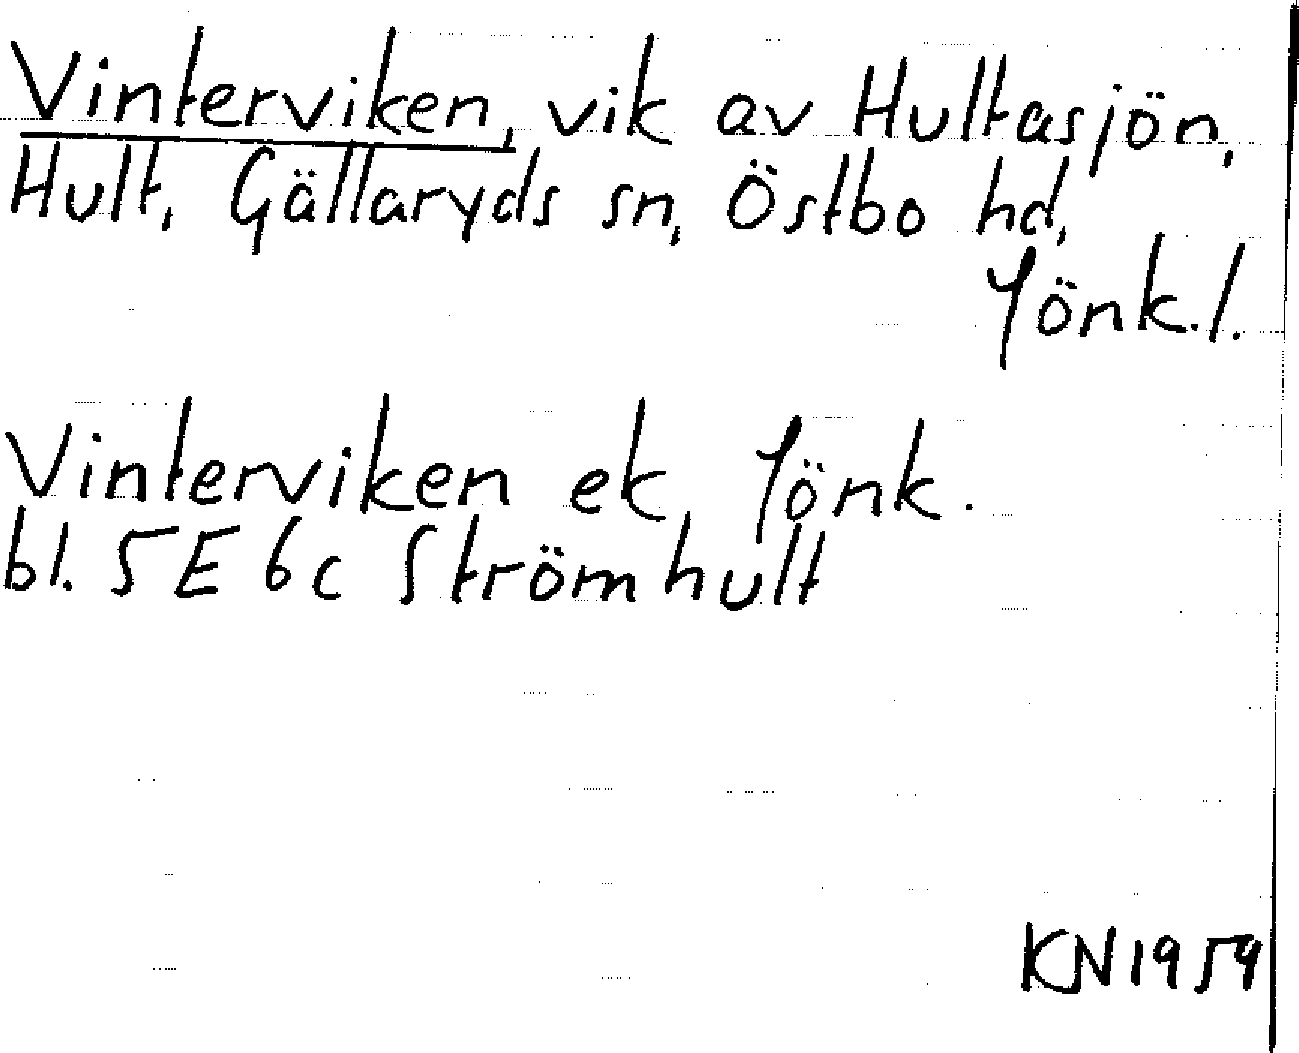 Vinterviken, vik av Hultasjön,
Hult, Gällaryds sn, Östbo hd,
Jönk.l.
Vinterviken ek Jönk.
bl. 5E 6c Strömhult
KN1959